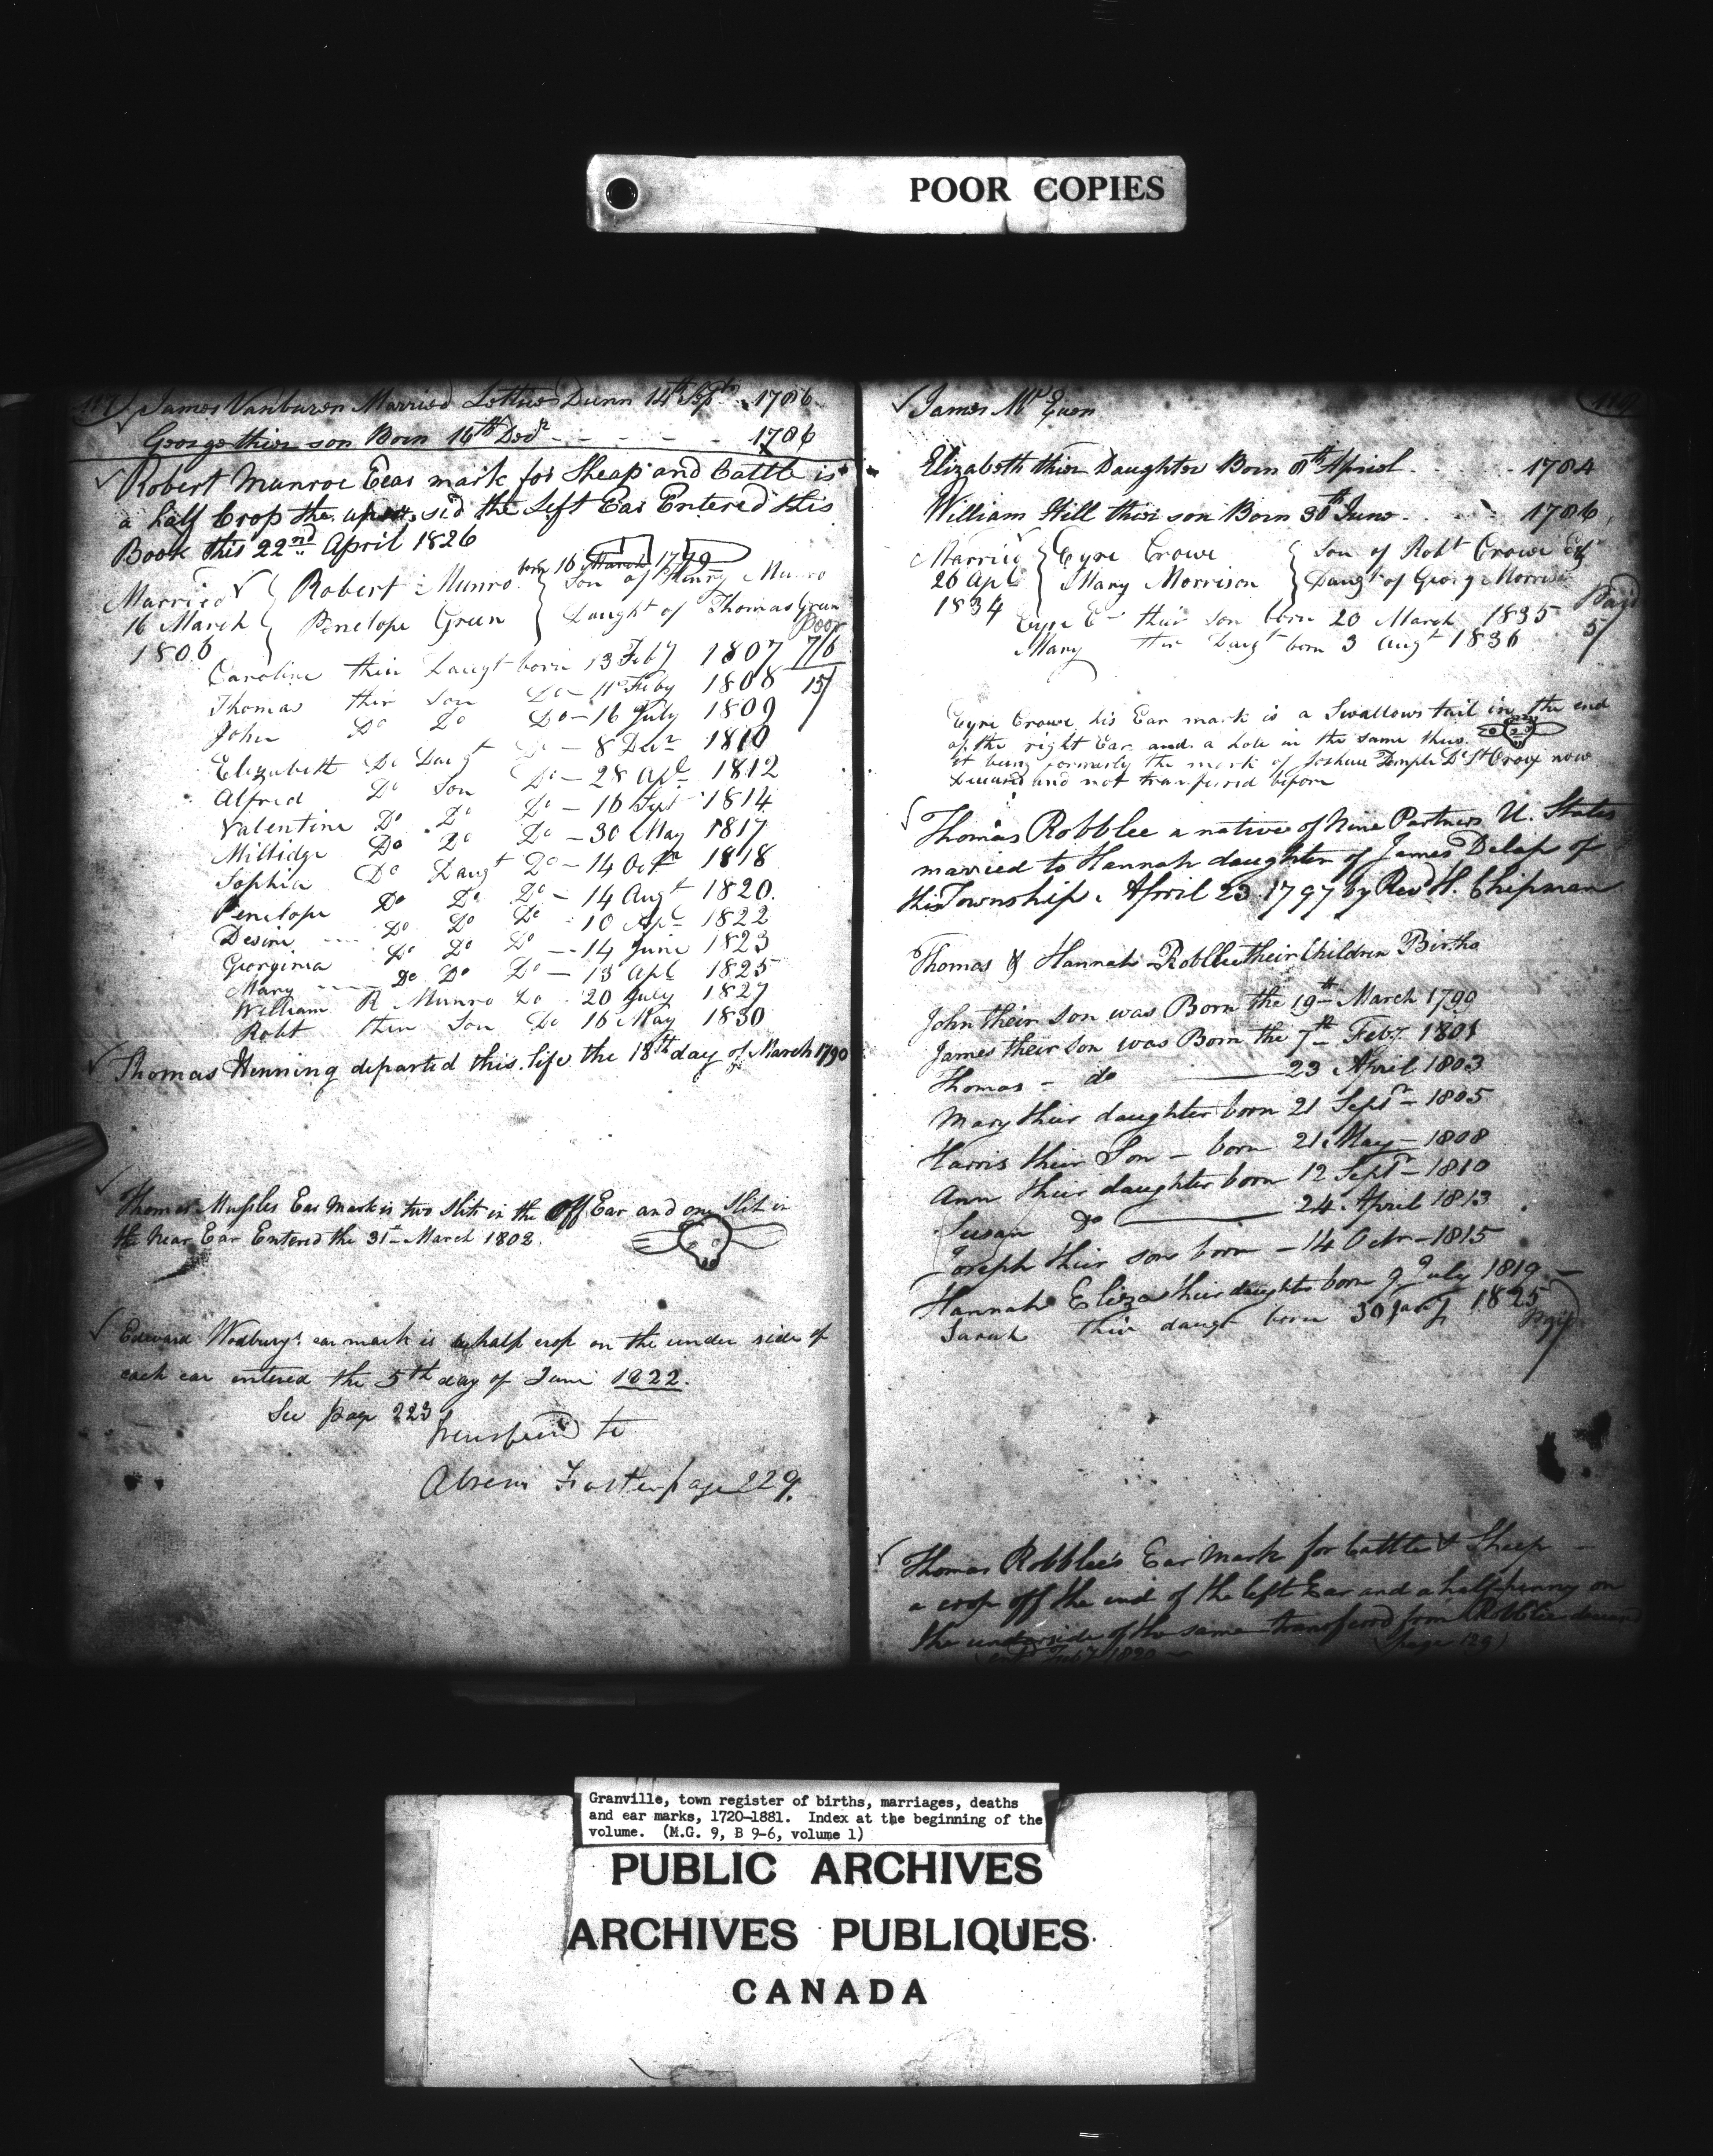 POOR COPIES
117 James Vanburen Married Lettice Dunn 14th Sept. 1786
George thier son Born 16th Decr - - - - - 1786
Robert Munroe Eear mark for Sheap and Cattle is
a half Crop the sid the Left Ear Entered this
Book this 22nd April 1826
born 16 March 1779
Married Robert Munro Son of Henry Munro
16 March Penelope Green Daught of Thomas Green
1806 Poor
Caroline their Daugt born 13 Feby 1807 7/6
Thomas thir Son Do - 11 Feby 1808 15/
John Do Do Do - 16 July 1809
Elizabeth Do Daugt Do - 8 Decr 1810
Alfred Do Son Do - 28 Apl 1812
Valentine Do Do Do - 16 Sept 1814
Millidge Do Do Do - 30 May 1817
Sophia Do Daugt Do - 14 Octr 1818
Penelope Do Do Do - 14 Augt 1820.
Desire Do Do Do 10 Apl 1822
Georginia Do Do Do - 14 June 1823
Mary Do Do Do - 13 Apl 1825
William R Munro Do 20 July 1827
Robt thin Son Do 16 May 1830
Thomas Henning departed this life the 18th day of March 1790
Thomas Ear Mark is two Slits in the Off Ear and one Slit in
the Near Ear Entered the 31st March 1802.
Edward Wodbury's ear mark is a half crop on the under side of
each ear entered the 5th day of June 1822.
See page 223
Transferred to
Foster page 229.
James Mc Euen
Elizabeth thier Daughter Born 8th Apriel - - - 1784
William Hill thier son Born 30th June - - - 1786
Married Eyre Crowe Son of Robt Crowe Esqr
26 Apl Mary Morrison Daugt of George Morrison
1834
Eyre C - their Son born 20 March 1835 Paid
Mary thir Daugt born 3 Augt 1836 5/
Eyre Crowe his Ear mark is a Swallows tail in the end
of the right Ear and a hole in the same thus
it being formerly the mark of Joshua Temple De St Croix now
Deceased and not transferred before
Thomas Robblee a native of Nine Partners U. States
married to Hannah daughter of James Delap of
this Township. April 23 1797 by Revd H. Chipman
Thomas & Hannah Robblee their Children Births
John their son was Born the 19th March 1799
James their son was Born the 7th Feby 1801
Thomas - do 23 April 1803
Mary their daughter born 21 Septr - 1805
Harris their Son - born 21 May - 1808
Ann their daughter born 12 Septr - 1810
Susan Do 24 April 1813
Joseph their son born - 14 Octr - 1815
Hannah Eliza their daughter born 9 July 1819 -
Sarah thir daugt born 30 Jany 1825
Paid
Thomas Robblee's Ear Mark for Cattle & Sheep -
a crop off the end of the left Ear and a half penny on
the underside of the same transferrd from Robblee deceased
Feby 1820 - (page 129)
Granville, town register of births, marriages, deaths
and ear marks, 1720-1881. Index at the beginning of the
volume. (M.G. 9, B 9-6, volume 1)
PUBLIC ARCHIVES
ARCHIVES PUBLIQUES
CANADA